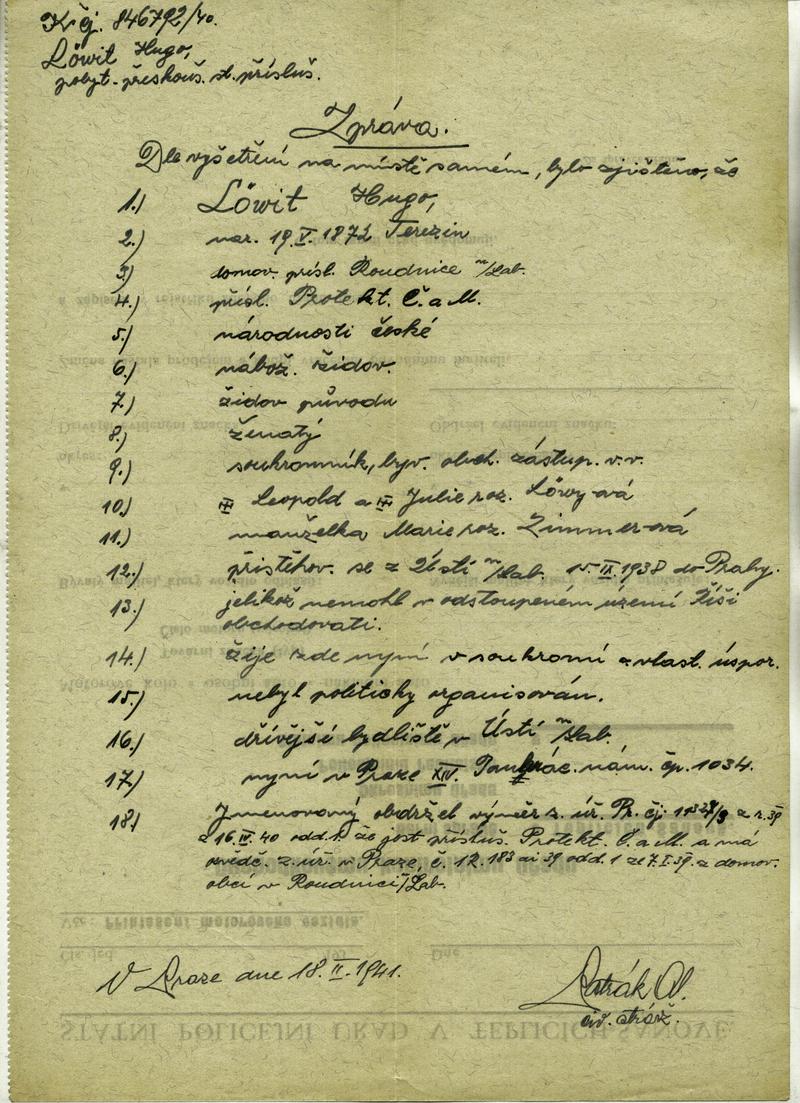 K čj. 846792/40.
Löwit Hugo,
pobyt - přeskouš. st. přísluš.
Zpráva.
Dle vyšetření na místě samém, bylo zjištěno, že
1.) Löwit Hugo,
2.) nar. 19.V. 1872 Terezín
3.) domov. přísl. Roudnice n/Lab.
4.) přísl. Protekt. Č. a M.
5.) národnosti české
6.) nábož. židov.
7.) židov původu
8.) ženatý
9.) soukromník, byv. obch. zástup. v.v.
10.) Leopold a Julie roz. Löwy-ová
11.) manželka Marie roz. Zimmer-ová
12.) přistěhov. se z Ústí n/Lab. 15.IX.1938 do Prahy.
13.) jelikož nemohl v odstoupeném území Říši
obchodovati.
14.) žije zde nyní v soukromí z vlast. úspor.
15.) nebyl politicky organisován.
16.) dřívější bydliště v Ústí n/Lab.
17.) nyní v Praze XIV. Pankrác. nám. čp. 1034.
18.) Jmenovaný obdržel výměr z. úř. Pr. čj. z r. 39
z 16.IV.40 odd. že jest přísluš. Protekt. Č. a M. a má
osvědč. z. úř. v Praze, č. 12.183 ai 39 odd. 1 ze 7.I.39. z domov.
obcí v Roudnici n/Lab.
V Praze dne 18.II.1941.
STÁTNÍ POLICEJNÍ ÚŘAD V TEPLICÍCH-ŠANOVĚ